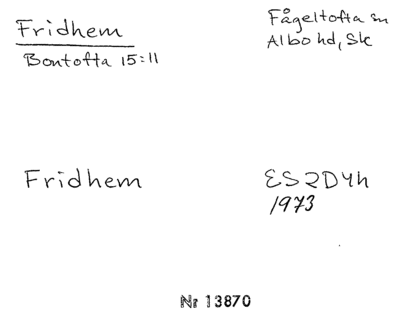 Fridhem
Bontofta 15:11
Fågeltofta sn
Albo hd, Sk
Fridhem
ES2D4h
1973
Nr 13870